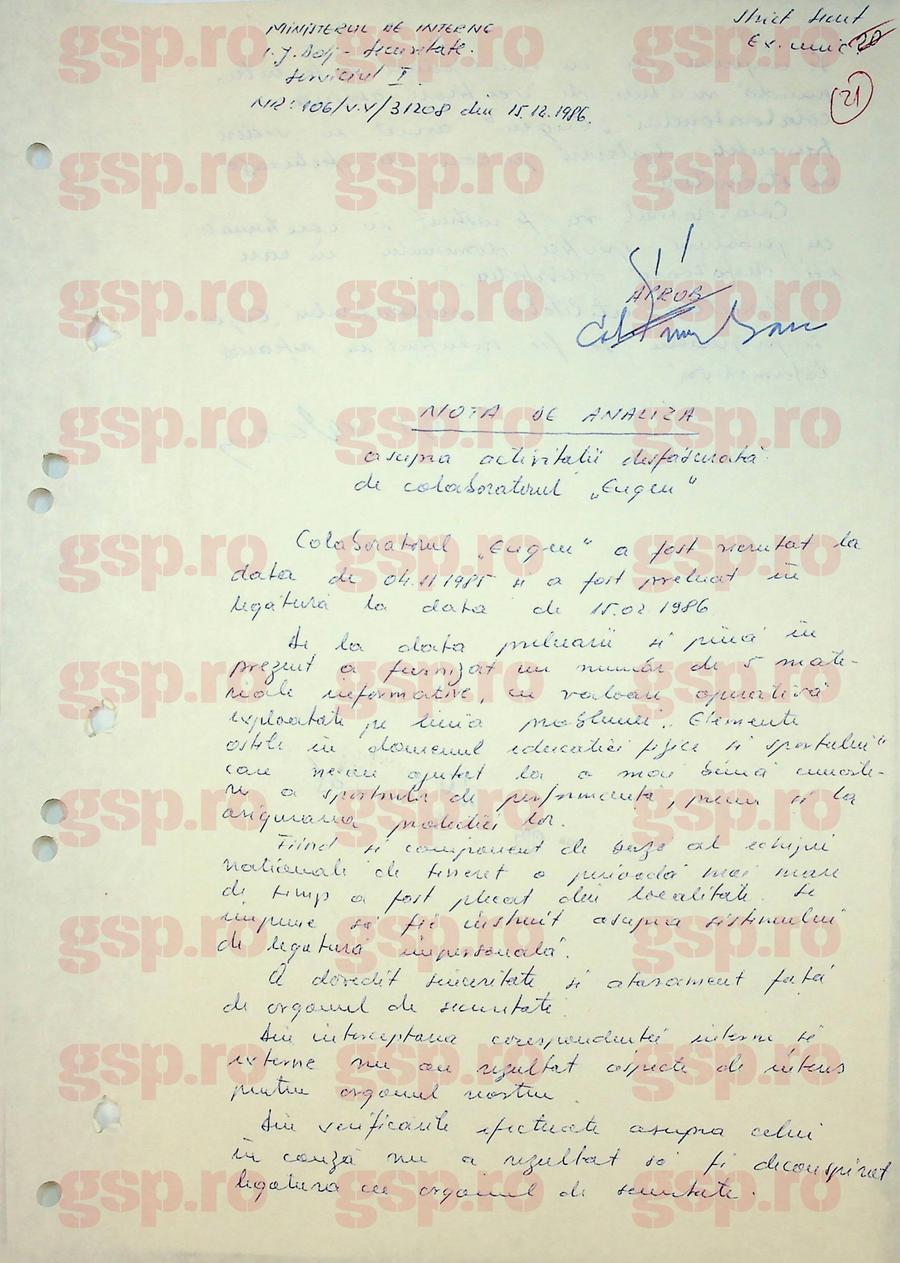 MINISTERUL DE INTERNE
I.J. Dolj - Securitate.
Serviciul I.
NR: 106/V.V/31208 din 15.12.1986.
Strict secret
Ex. unic
20
21
APROB
NOTA DE ANALIZA
asupra activitatii desfasurată
de colaboratorul „Eugen“
Colaboratorul „Eugen“ a fost recrutat la
data de 04.11.1985 si a fost preluat în
legătură la data de 15.02.1986
De la data preluarii si pînă în
prezent a furnizat un număr de 5 mate-
riale informative, cu valoare operativă
exploatate pe linia problemei „Elemente
ostile în domeniul educatiei fizice si sportului“
care ne-au ajutat la o mai bună cunoaste-
re a sportului de performantă, precum si la
asigurarea protectiei lor.
Fiind si component de bază al echipei
nationale de tineret o perioadă mai mare
de timp a fost plecat din localitate. Se
impune să fie instruit asupra sistemului
de legatură impersonală.
A dovedit sinceritate si atasament fată
de organul de securitate.
Din interceptarea corespondentei interne si
externe nu au rezultat aspecte de interes
pentru organul nostru.
Din verificarile efectuate asupra celui
în cauză nu a rezultat să fi deconspirat
legatura cu organul de securitate.
gsp.ro